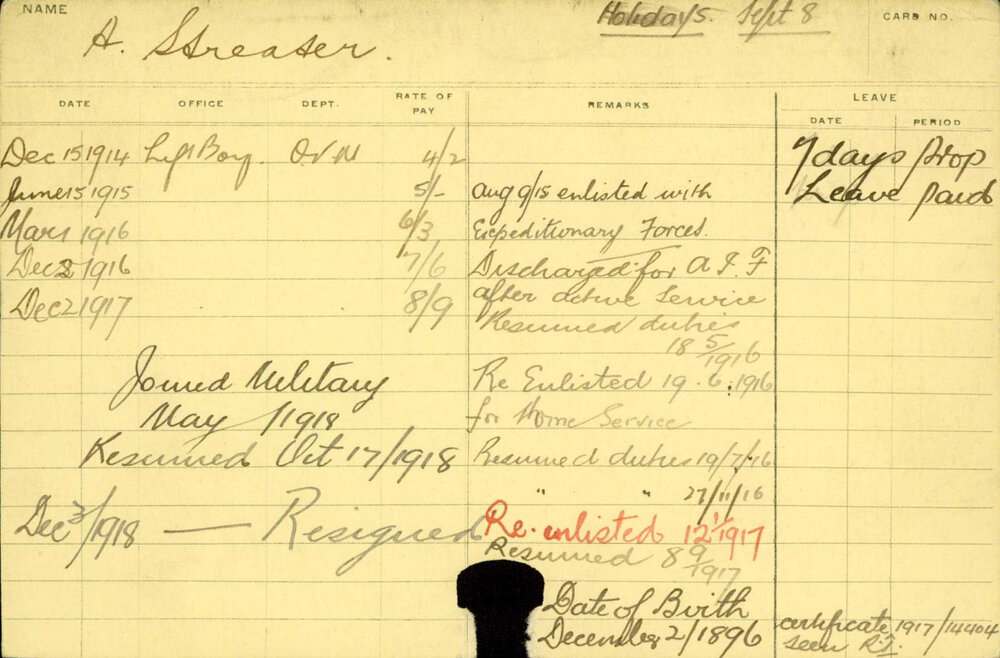 NAME
Holidays. Sept 8
CARD NO.
A. Streater.
DATE OFFICE DEPT. RATE OF PAY REMARKS LEAVE
DATE PERIOD
Dec 15 1914 Lift Boy. O.V.M 4/2
7 days prop
June 15 1915 5/- Aug 9/15 enlisted with
Leave paid
Mar 1 1916 6/3 Expeditionary Forces.
Dec 2 1916 7/6 Discharged for A I F
Dec 2 1917 8/9 after active service
Resumed duties
18 5/1916
Joined Military
Re Enlisted 19.6.1916
May 1/1918
for Home Service
Resumed Oct 17/1918
Resumed duties 19/7/16
" " 27/11/16
Dec 3/1918 — Resigned
Re-enlisted 12 1/1917
Resumed 8 9/1917
Date of Birth
December 2/1896
certificate 1917/14404
seen R.T.